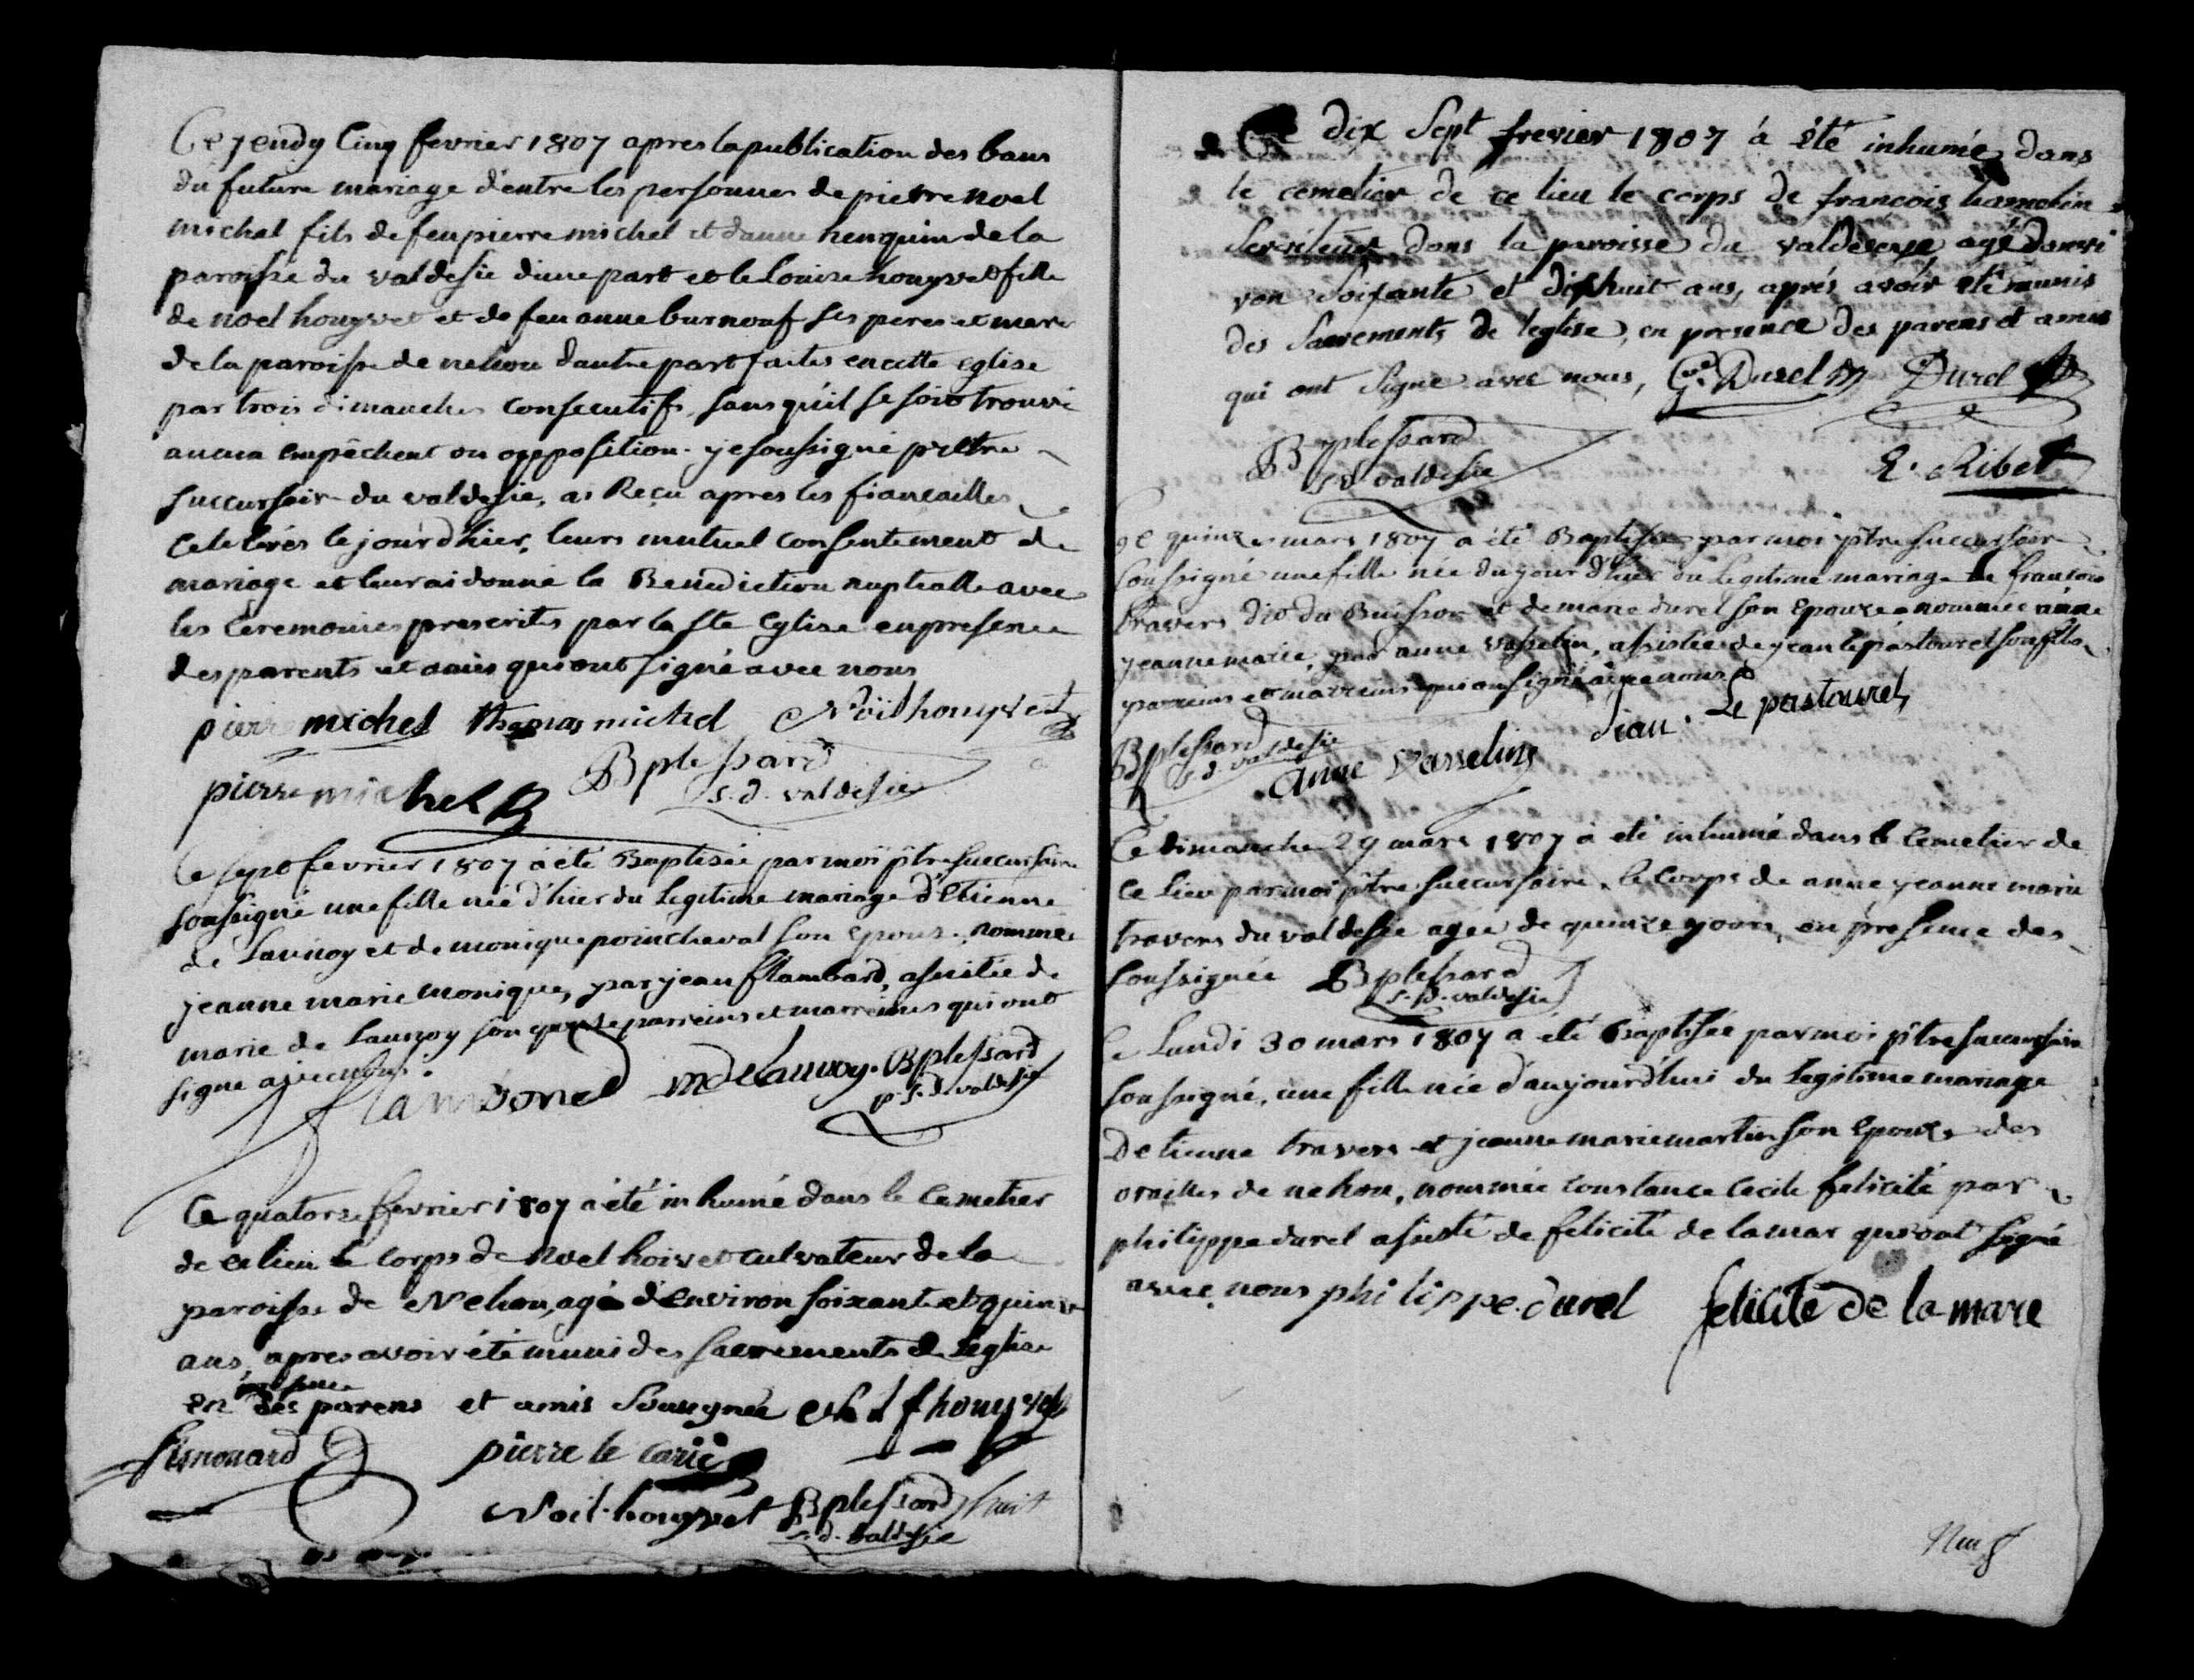 Ce jeudy Cinq fevrier 1807 apres la publication des bans
du future mariage d'entre les personnes de pierre noel
michel fils de feu pierre michel et danne henquin de la
paroisse du valdesie d'une part et de Louise houyvet fille
de noel houyvet et de feu anne burnouf ses peres et mere
de la paroisse de nehou dautre part faites en cette eglise
par trois dimanches consecutifs, sans qu'il se soit trouvé
aucun empêchent ou opposition. je soussigné prêtre
succursoir du valdesie, ai Reçu apres les fiancailles
celebrés le jour d'hier, leurs mutuel consentement de
mariage et leur ai donné la Benediction nuptialle avec
les Ceremonies prescrits par la ste Eglise en presence
des parents et amis qui ont signé avec nous
pierre michel thomas michel Noil houyvet
pierre michel B plessard
s. d. valdesie
Ce sept fevrier 1807 a été Baptisée par moi ptre succursoire
soussigné une fille née d'hier du Legitime mariage d'Etienne
de Launoy et de monique poincheval son epouse, nommée
jeanne marie monique, par jean flambard, assistée de
marie de Launoy son parreins et marreines qui ont
signé avec nous.
flambard mdelaunoy. B plessard
p. s. d. valdesie
Ce quatorse fevrier 1807 a été inhumé dans le Cemetier
de ce lieu le corps de Noel hoivet culvateur de la
paroisse de Nehou, agé d'environ soixante et quinze
ans, apres avoir été muni des sacrements de l'eglise
presence
en des parens et amis Sousignée f houyvet
pierre le carié
Noil. houyvet B plessard huit
s. d. valdesie
Ce dix Sept frevier 1807 á été inhumé dans
le cemetier de ce lieu le corps de francois hamelin
Serviteur dans la paroisse du valdecye agé danvi
ron Soixante et dixhuit ans, aprés avoir été munis
des Sacrements de leglise, en presence des parens et amis
qui ont Signe avec nous, Durel Durel
B plessard
s d valdesie
Ribet
Ce quinze mars 1807 a été Baptisée par moi ptre succursoire
soussigné une fille née du jour d'hier du Legitime mariage de francois
travers dit du Buisson et de marie durel son Epouze nommée anne
jeanne marie, par anne vasselin, assistée de jean le pastourel son fils
parreins et marreins qui on signé avec nous
B plessard
s. d. valdesie
anne vasseling Jean. Le pastourel
Ce dimanche 29 mars 1807 a eté inhumé dans le Cemetier de
ce Lieu par moi ptre succursoire, le Corps de anne jeanne marie
travers du valdesie agée de quinze jours, en presence des
soussignée B plessard
s. d. valdesie
Ce Lundi 30 mars 1807 a été baptisée par moi ptre succursoire
soussigné, une fille née d'aujourd'hui du Legitime mariage
Detienne travers et jeanne marie martin son Epouze des
orailles de nehou, nommée constance Cecile felicité par
philippe durel assisté de felicité de lamar qui ont signé
avec nous philippe. durel felicité de la mare